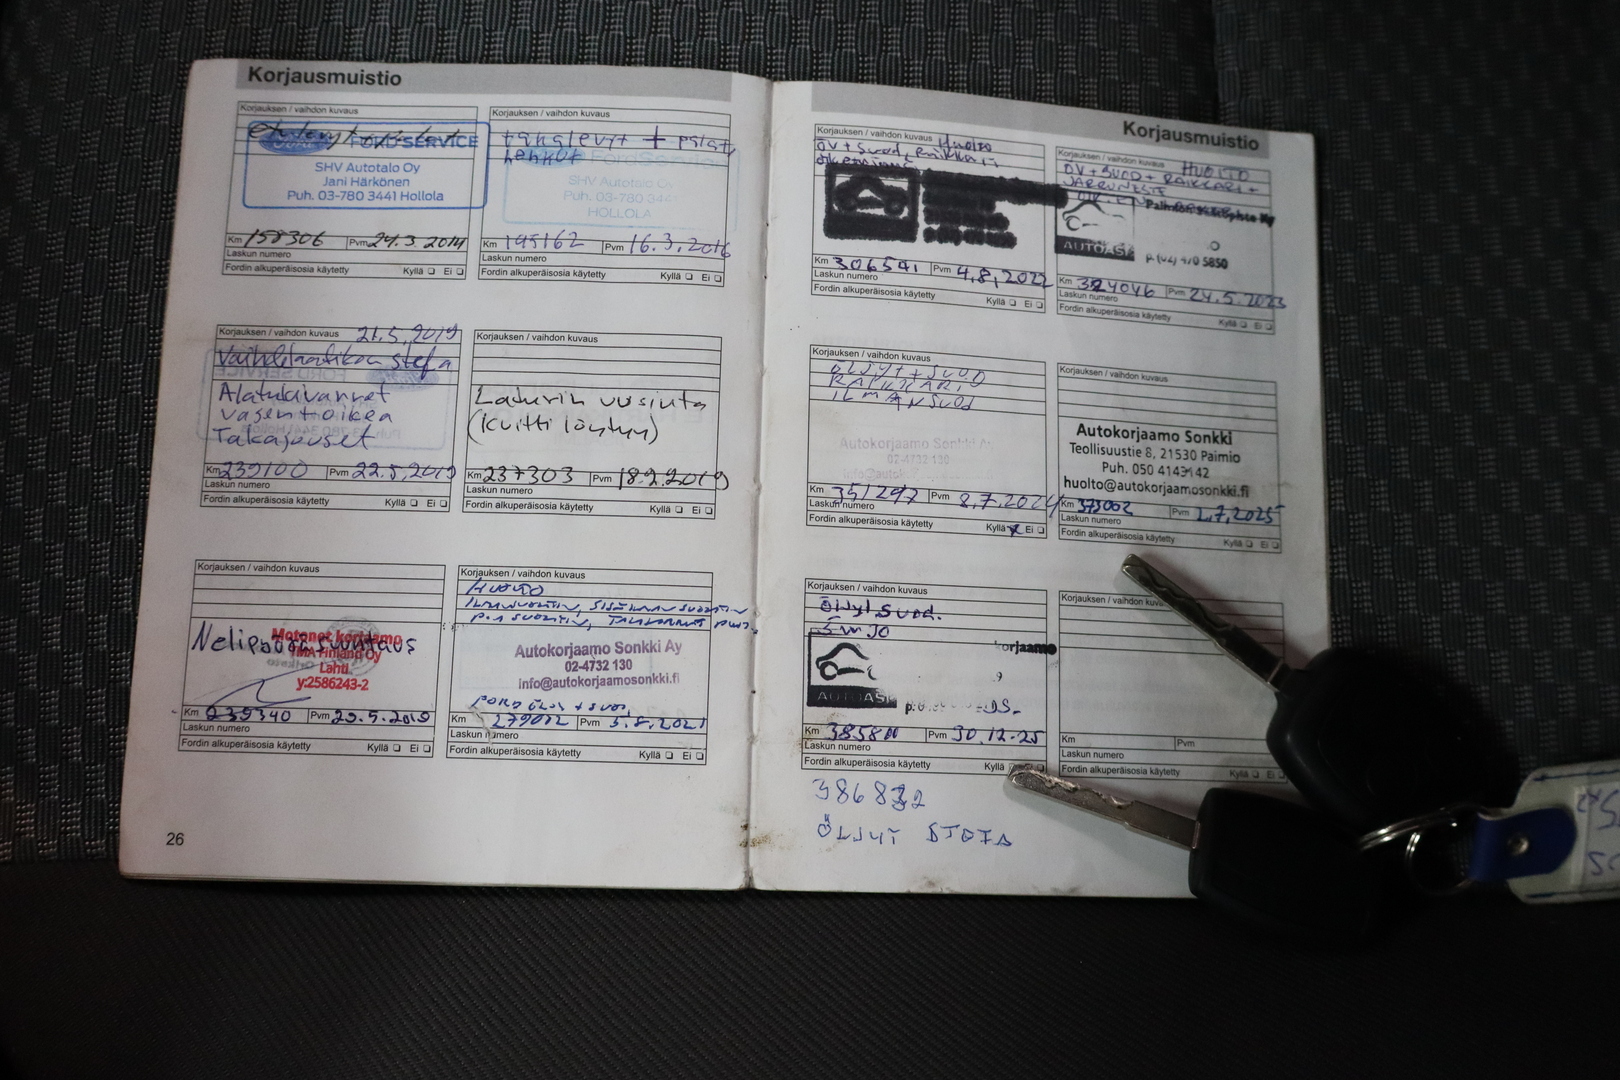 Korjausmuistio
Korjauksen / vaihdon kuvaus
Etulevyt + palat
Ford
FORD SERVICE
SHV Autotalo Oy
Jani Härkönen
Puh. 03-780 3441 Hollola
Km 158306 Pvm 24.3.2014
Laskun numero
Fordin alkuperäisosia käytetty Kyllä Ei
Korjauksen / vaihdon kuvaus
takalevyt + palat
FordService
SHV Autotalo Oy
Puh. 03-780 344
HOLLOLA
Km 195162 Pvm 16.3.2016
Laskun numero
Fordin alkuperäisosia käytetty Kyllä Ei
Korjauksen / vaihdon kuvaus 21.5.2019
Vaihdelaatikon stefa
Alatukivarret
vasen + oikea
Takajouset
Km 239100 Pvm 22.5.2019
Laskun numero
Fordin alkuperäisosia käytetty Kyllä Ei
Korjauksen / vaihdon kuvaus
Laturin uusinta
(kuitti löytyy)
Km 237303 Pvm 18.2.2019
Laskun numero
Fordin alkuperäisosia käytetty Kyllä Ei
Korjauksen / vaihdon kuvaus
Nelipyöräsuuntaus
Motonet korjaamo
TMA Finland Oy
Lahti
y:2586243-2
Km 239340 Pvm 29.5.2019
Laskun numero
Fordin alkuperäisosia käytetty Kyllä Ei
Korjauksen / vaihdon kuvaus
HUOLTO
ILMANSUODATIN, SISÄILMAN SUODATIN
P.A SUODATIN, TAKAJARRUT
Autokorjaamo Sonkki Ay
02-4732 130
info@autokorjaamosonkki.fi
FORD ÖLJY + SUOD.
Km 279082 Pvm 5.8.2021
Laskun numero
Fordin alkuperäisosia käytetty Kyllä Ei
26
Korjausmuistio
Korjauksen / vaihdon kuvaus Huolto
ÖV + Suod + Raikkari
Km 306541 Pvm 4.8.2022
Laskun numero
Fordin alkuperäisosia käytetty Kyllä Ei
Korjauksen / vaihdon kuvaus HUOLTO
ÖV + SUOD + RAIKKARI +
JARRUNESTE
AUTOASI
p. (02) 470 5850
Km 324046 Pvm 24.5.2023
Laskun numero
Fordin alkuperäisosia käytetty Kyllä Ei
Korjauksen / vaihdon kuvaus
ÖLJYT + SUOD
RAIKKARI
ILMANSUOD
Autokorjaamo Sonkki Ay
02-4732 130
Km 351297 Pvm 8.7.2024
Laskun numero
Fordin alkuperäisosia käytetty Kyllä x Ei
Korjauksen / vaihdon kuvaus
Autokorjaamo Sonkki
Teollisuustie 8, 21530 Paimio
Puh. 050 4143142
huolto@autokorjaamosonkki.fi
Km 373002 Pvm 1.7.2025
Laskun numero
Fordin alkuperäisosia käytetty Kyllä Ei
Korjauksen / vaihdon kuvaus
Öljyt Suod.
5W30
korjaamo
AUTOASI
Km 385800 Pvm 30.12.25
Laskun numero
Fordin alkuperäisosia käytetty Kyllä
Korjauksen / vaihdon
Km Pvm
Laskun numero
Fordin alkuperäisosia käytetty Kyllä
386832
ÖLJYT